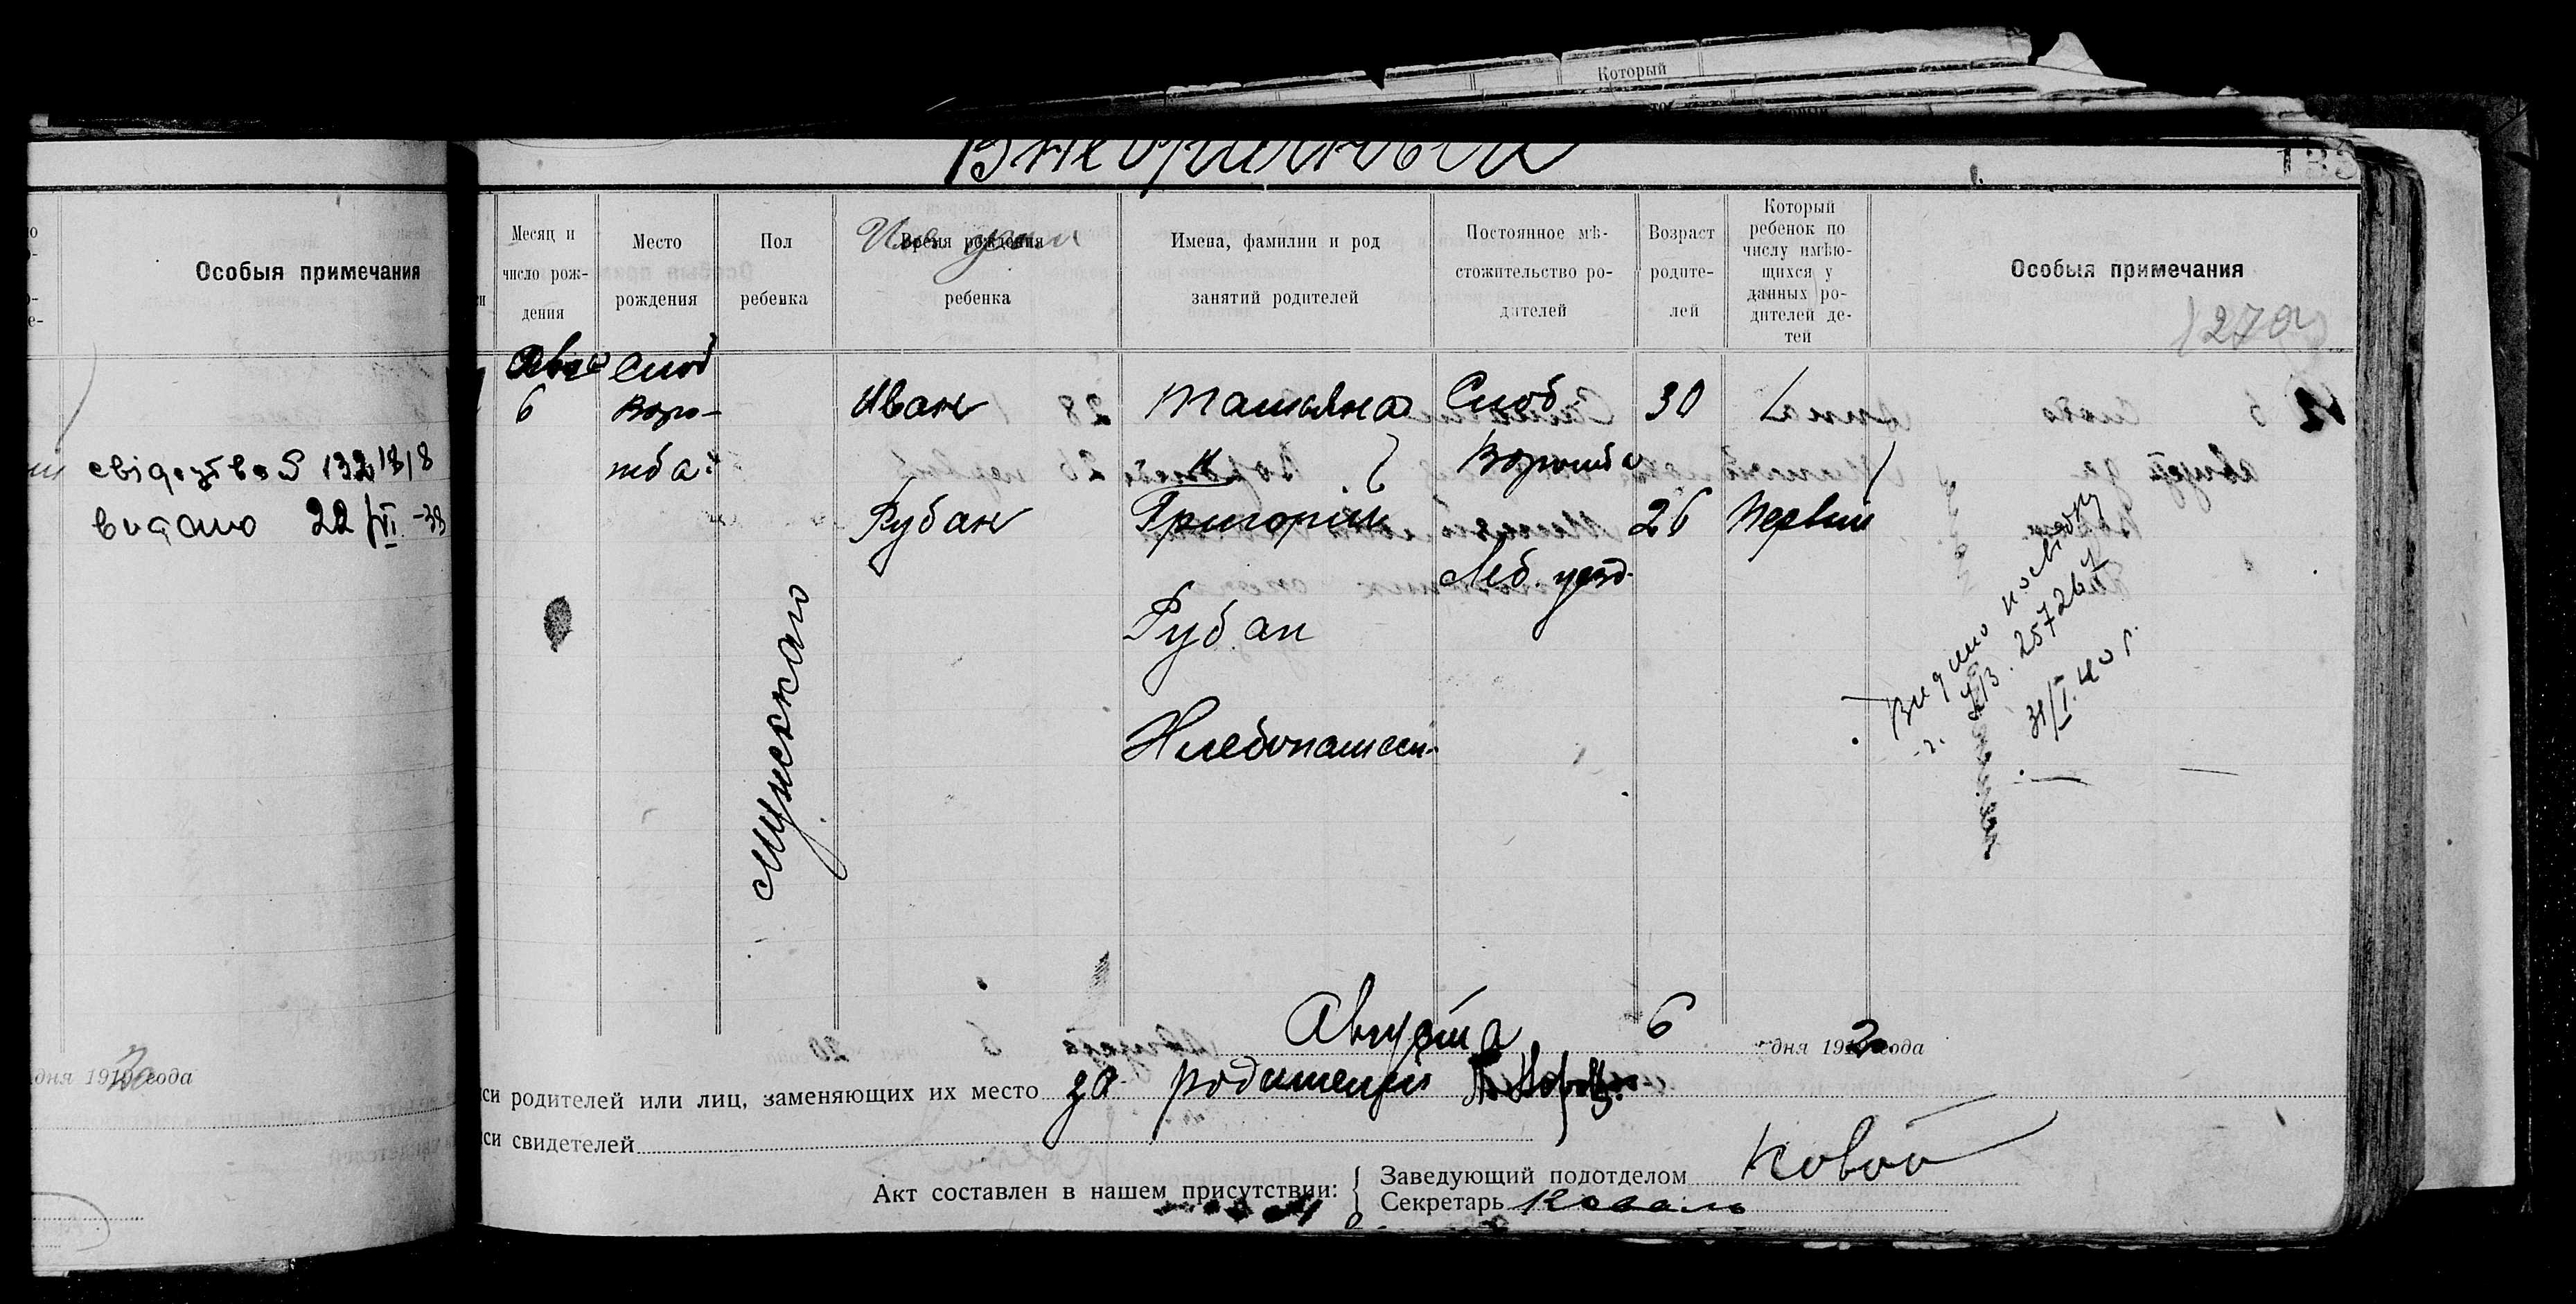 Который
133
Особыя примечания
свідоцтво S 132 18/8
видано 22/VI -33
дня 1920 года
Месяц и число рож- дения
Место рождения
Пол ребенка
Время рождения ребенка
Имена, фамилии и род занятий родителей
Постоянное мѣ- стожительство ро- дителей
Возраст родите- лей
Который ребенок по числу имѣю- щихся у данных ро- дителей де- тей
Особыя примечания
Авг
6
Слоб
Воро-
жба
мужскаго
Иван
Рубан
Татьяна
и
Григорий
Рубан
Хлебопашест-
Слоб.
Ворожба
Леб. уезд.
30
26
1
Первый
Видано посвідку
257267
31/I.40 г.
Августа 6 дня 1920 года
си родителей или лиц, заменяющих их место за родителей
си свидетелей
Акт составлен в нашем присутствии:
Заведующий подотделом Ковал
Секретарь Коваль